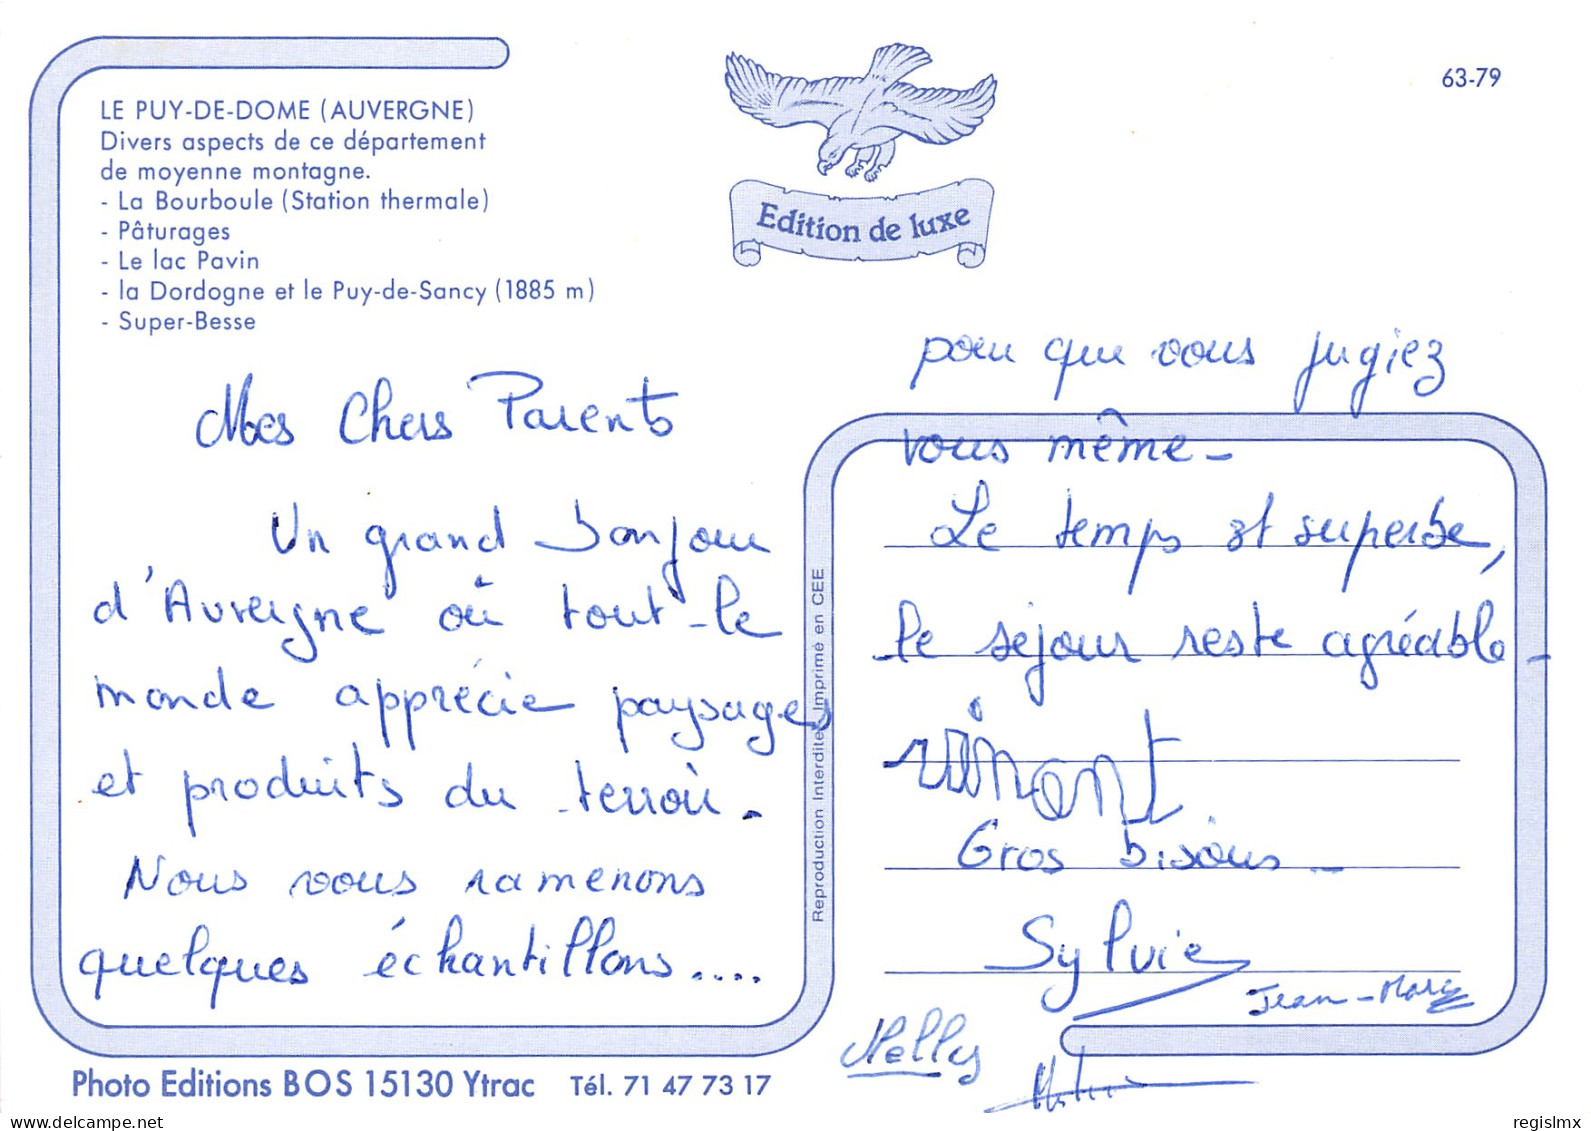 LE PUY-DE-DOME (AUVERGNE)
Divers aspects de ce département
de moyenne montagne.
- La Bourboule (Station thermale)
- Pâturages
- Le lac Pavin
- la Dordogne et le Puy-de-Sancy (1885 m)
- Super-Besse
Edition de luxe
63-79
Mes Chers Parents
Un grand bonjour
d'Auvergne où tout-le
monde apprécie paysages
et produits du terroir.
Nous vous ramenons
quelques échantillons....
Reproduction Interdite. Imprimé en CEE
pour que vous jugiez
vous même -
Le temps est superbe,
le séjour reste agréable -
Gros bisous -
Sylvie
Jean-Marc
Nelly
Photo Editions BOS 15130 Ytrac Tél. 71 47 73 17
delcampe.net
regislmx